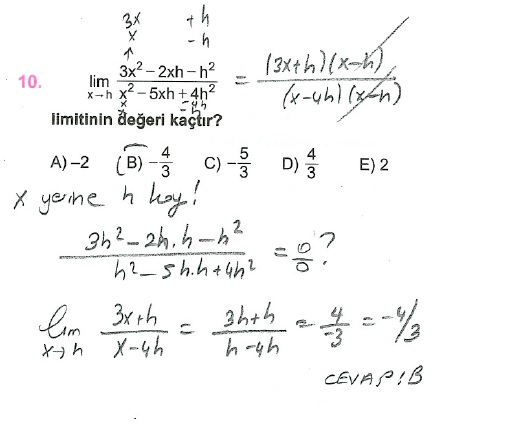 3x +h
x -h
10. lim x→h (3x² – 2xh – h²)/(x² – 5xh + 4h²) = (3x+h)(x-h)/(x-4h)(x-h)
x -4h
x -h
limitinin değeri kaçtır?
A) –2 B) –4/3 C) –5/3 D) 4/3 E) 2
x yerine h koy!
(3h² - 2h.h - h²)/(h² - 5h.h + 4h²) = 0/0 ?
lim x→h (3x+h)/(x-4h) = (3h+h)/(h-4h) = 4/-3 = -4/3
CEVAP: B